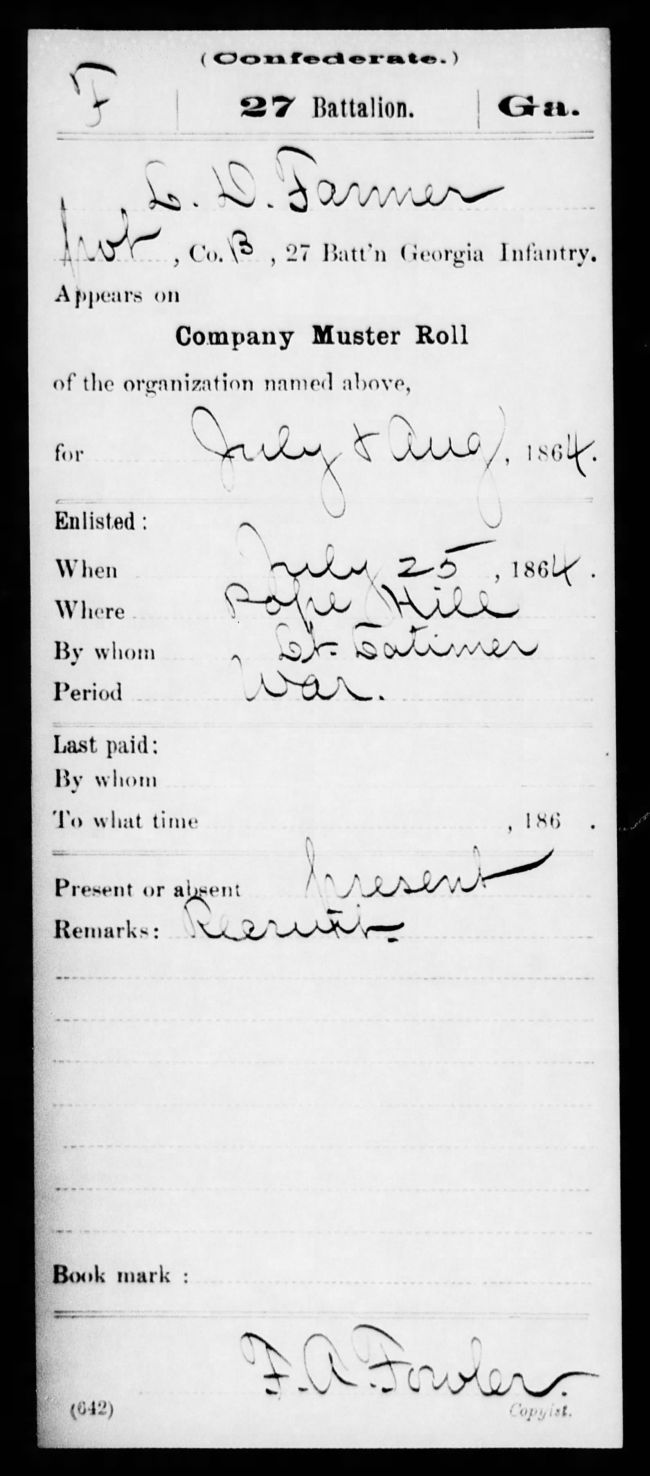 (Confederate.)
F | 27 Battalion. | Ga.
L. D. Farmer
Pvt, Co. B, 27 Batt'n Georgia Infantry.
Appears on
Company Muster Roll
of the organization named above,
for July & Aug, 1864.
Enlisted:
When July 25, 1864.
Where Pope Hill
By whom Lt. Latimer
Period War.
Last paid:
By whom
To what time , 186 .
Present or absent Present
Remarks: Recruit.
Book mark:
F. A. Fowler.
(642) Copyist.